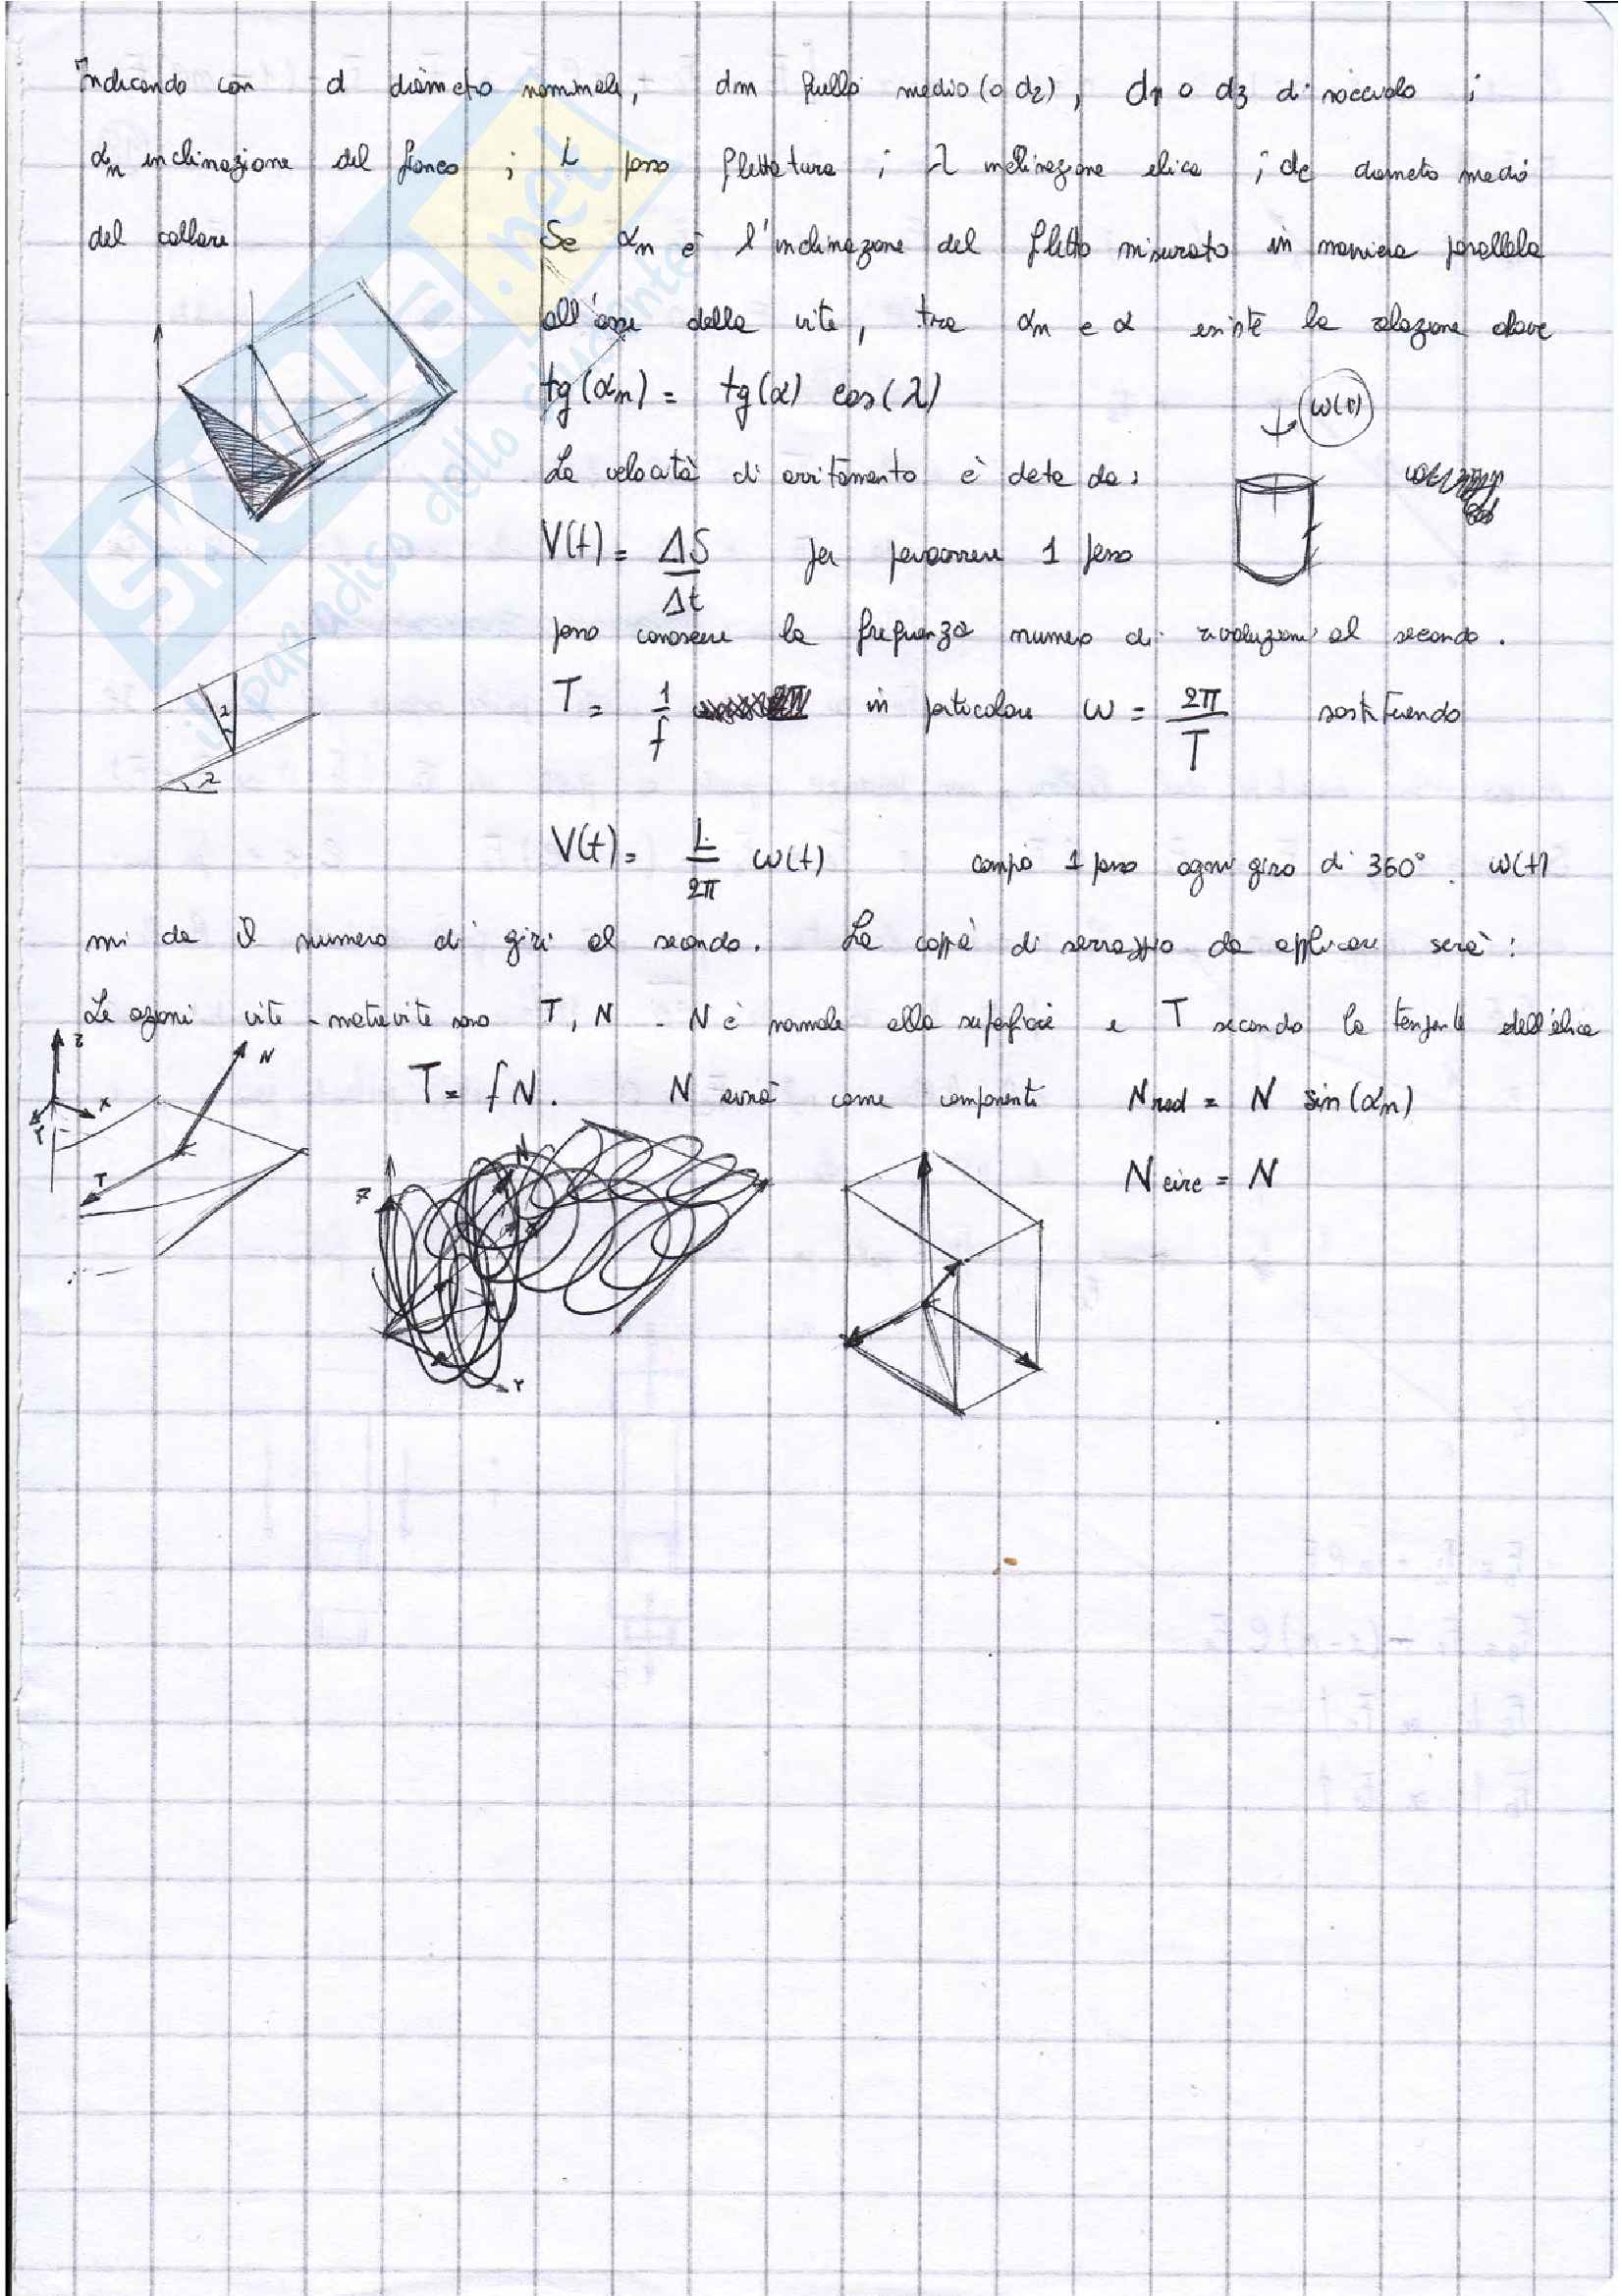 Indicando con d diametro nominale, dm quello medio (o d2), d1 o d3 di nocciolo ;
αn inclinazione del fianco ; L passo filettatura ; λ inclinazione elica ; dc diametro medio
del collare Se αn è l'inclinazione del filetto misurato in maniera parallela
all'asse della vite, tra αn e α esiste la relazione dove
tg(αn) = tg(α) cos(λ)
ω(t)
La velocità di avvitamento è data da:
V(t) = ΔS/Δt per percorrere 1 passo
posso conoscere la frequenza numero di rivoluzioni al secondo.
T = 1/f in particolare ω = 2π/T sostituendo
λ
λ
V(t) = L/2π ω(t) compio 1 passo ogni giro di 360°. ω(t)
mi da il numero di giri al secondo. La coppia di serraggio da applicare sarà:
Le azioni vite-madrevite sono T, N - N è normale alla superficie e T secondo la tangente dell'elica
Z N X Y T
T = fN. N avrà come componenti Nrad = N sin(αn)
Ncirc = N
Z N Y
SKUOLA.net
il paradiso dello studente